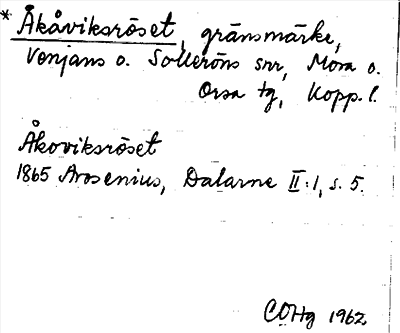 * Åkåviksröset, gränsmärke,
Venjans o. Solleröns snr, Mora o.
Orsa tg, Kopp. l.
Åkoviksröset
1865 Arosenius, Dalarne II:1, s. 5.
COHg 1962